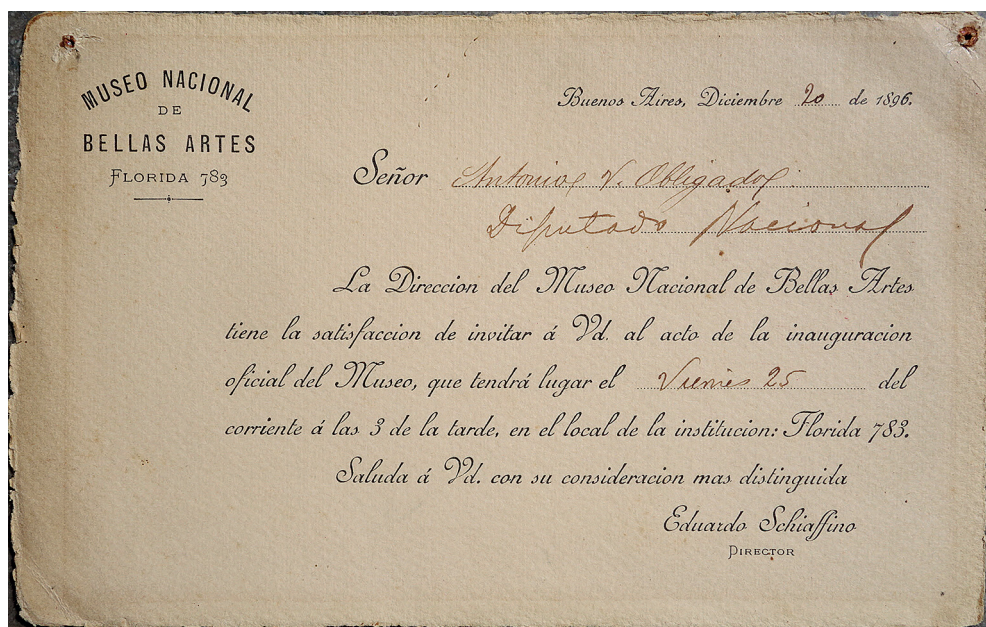 MUSEO NACIONAL
DE
BELLAS ARTES
FLORIDA 783
Buenos Aires, Diciembre 20 de 1896.
Señor Antonio V. Obligado
Diputado Nacional
La Direccion del Museo Nacional de Bellas Artes
tiene la satisfaccion de invitar á Vd. al acto de la inauguracion
oficial del Museo, que tendrá lugar el Viernes 25 del
corriente á las 3 de la tarde, en el local de la institucion: Florida 783.
Saluda á Vd. con su consideracion mas distinguida
Eduardo Schiaffino
DIRECTOR